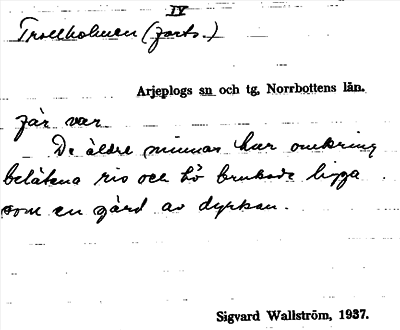 IV
Trollholmen (forts.)
Arjeplogs sn och tg, Norrbottens län.
far var
De äldre minnas hur omkring
beläten ris och hö brukade ligga
som en gärd av dyrkan.
Sigvard Wallström, 1937.